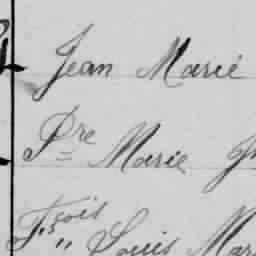 Jean Marie
Pre Marie
Fçois Louis